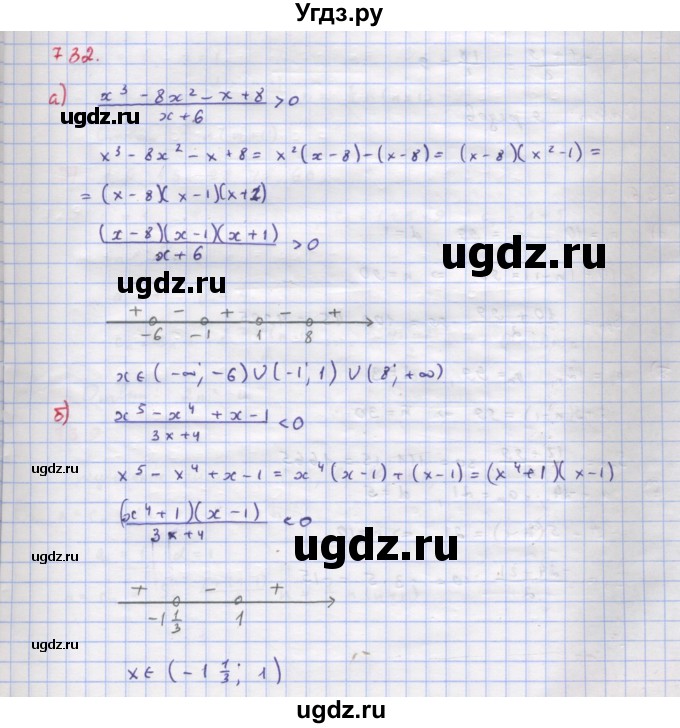 Угдз.ру
732.
а) x³ - 8x² - x + 8 / x + 6 > 0
ugdz.ru
x³ - 8x² - x + 8 = x²(x - 8) - (x - 8) = (x - 8)(x² - 1) =
= (x - 8)(x - 1)(x + 1)
(x - 8)(x - 1)(x + 1) / x + 6 > 0
ugdz.ru
ugdz.ru
+ - + - +
-6 -1 1 8
x ∈ (-∞; -6) ∪ (-1; 1) ∪ (8; +∞)
б) x⁵ - x⁴ + x - 1 / 3x + 4 < 0
ugdz.ru
x⁵ - x⁴ + x - 1 = x⁴(x - 1) + (x - 1) = (x⁴ + 1)(x - 1)
(x⁴ + 1)(x - 1) / 3x + 4 < 0
ugdz.ru
ugdz.ru
+ - +
-1 1/3 1
ugdz.ru
x ∈ (-1 1/3; 1)
ugdz.ru